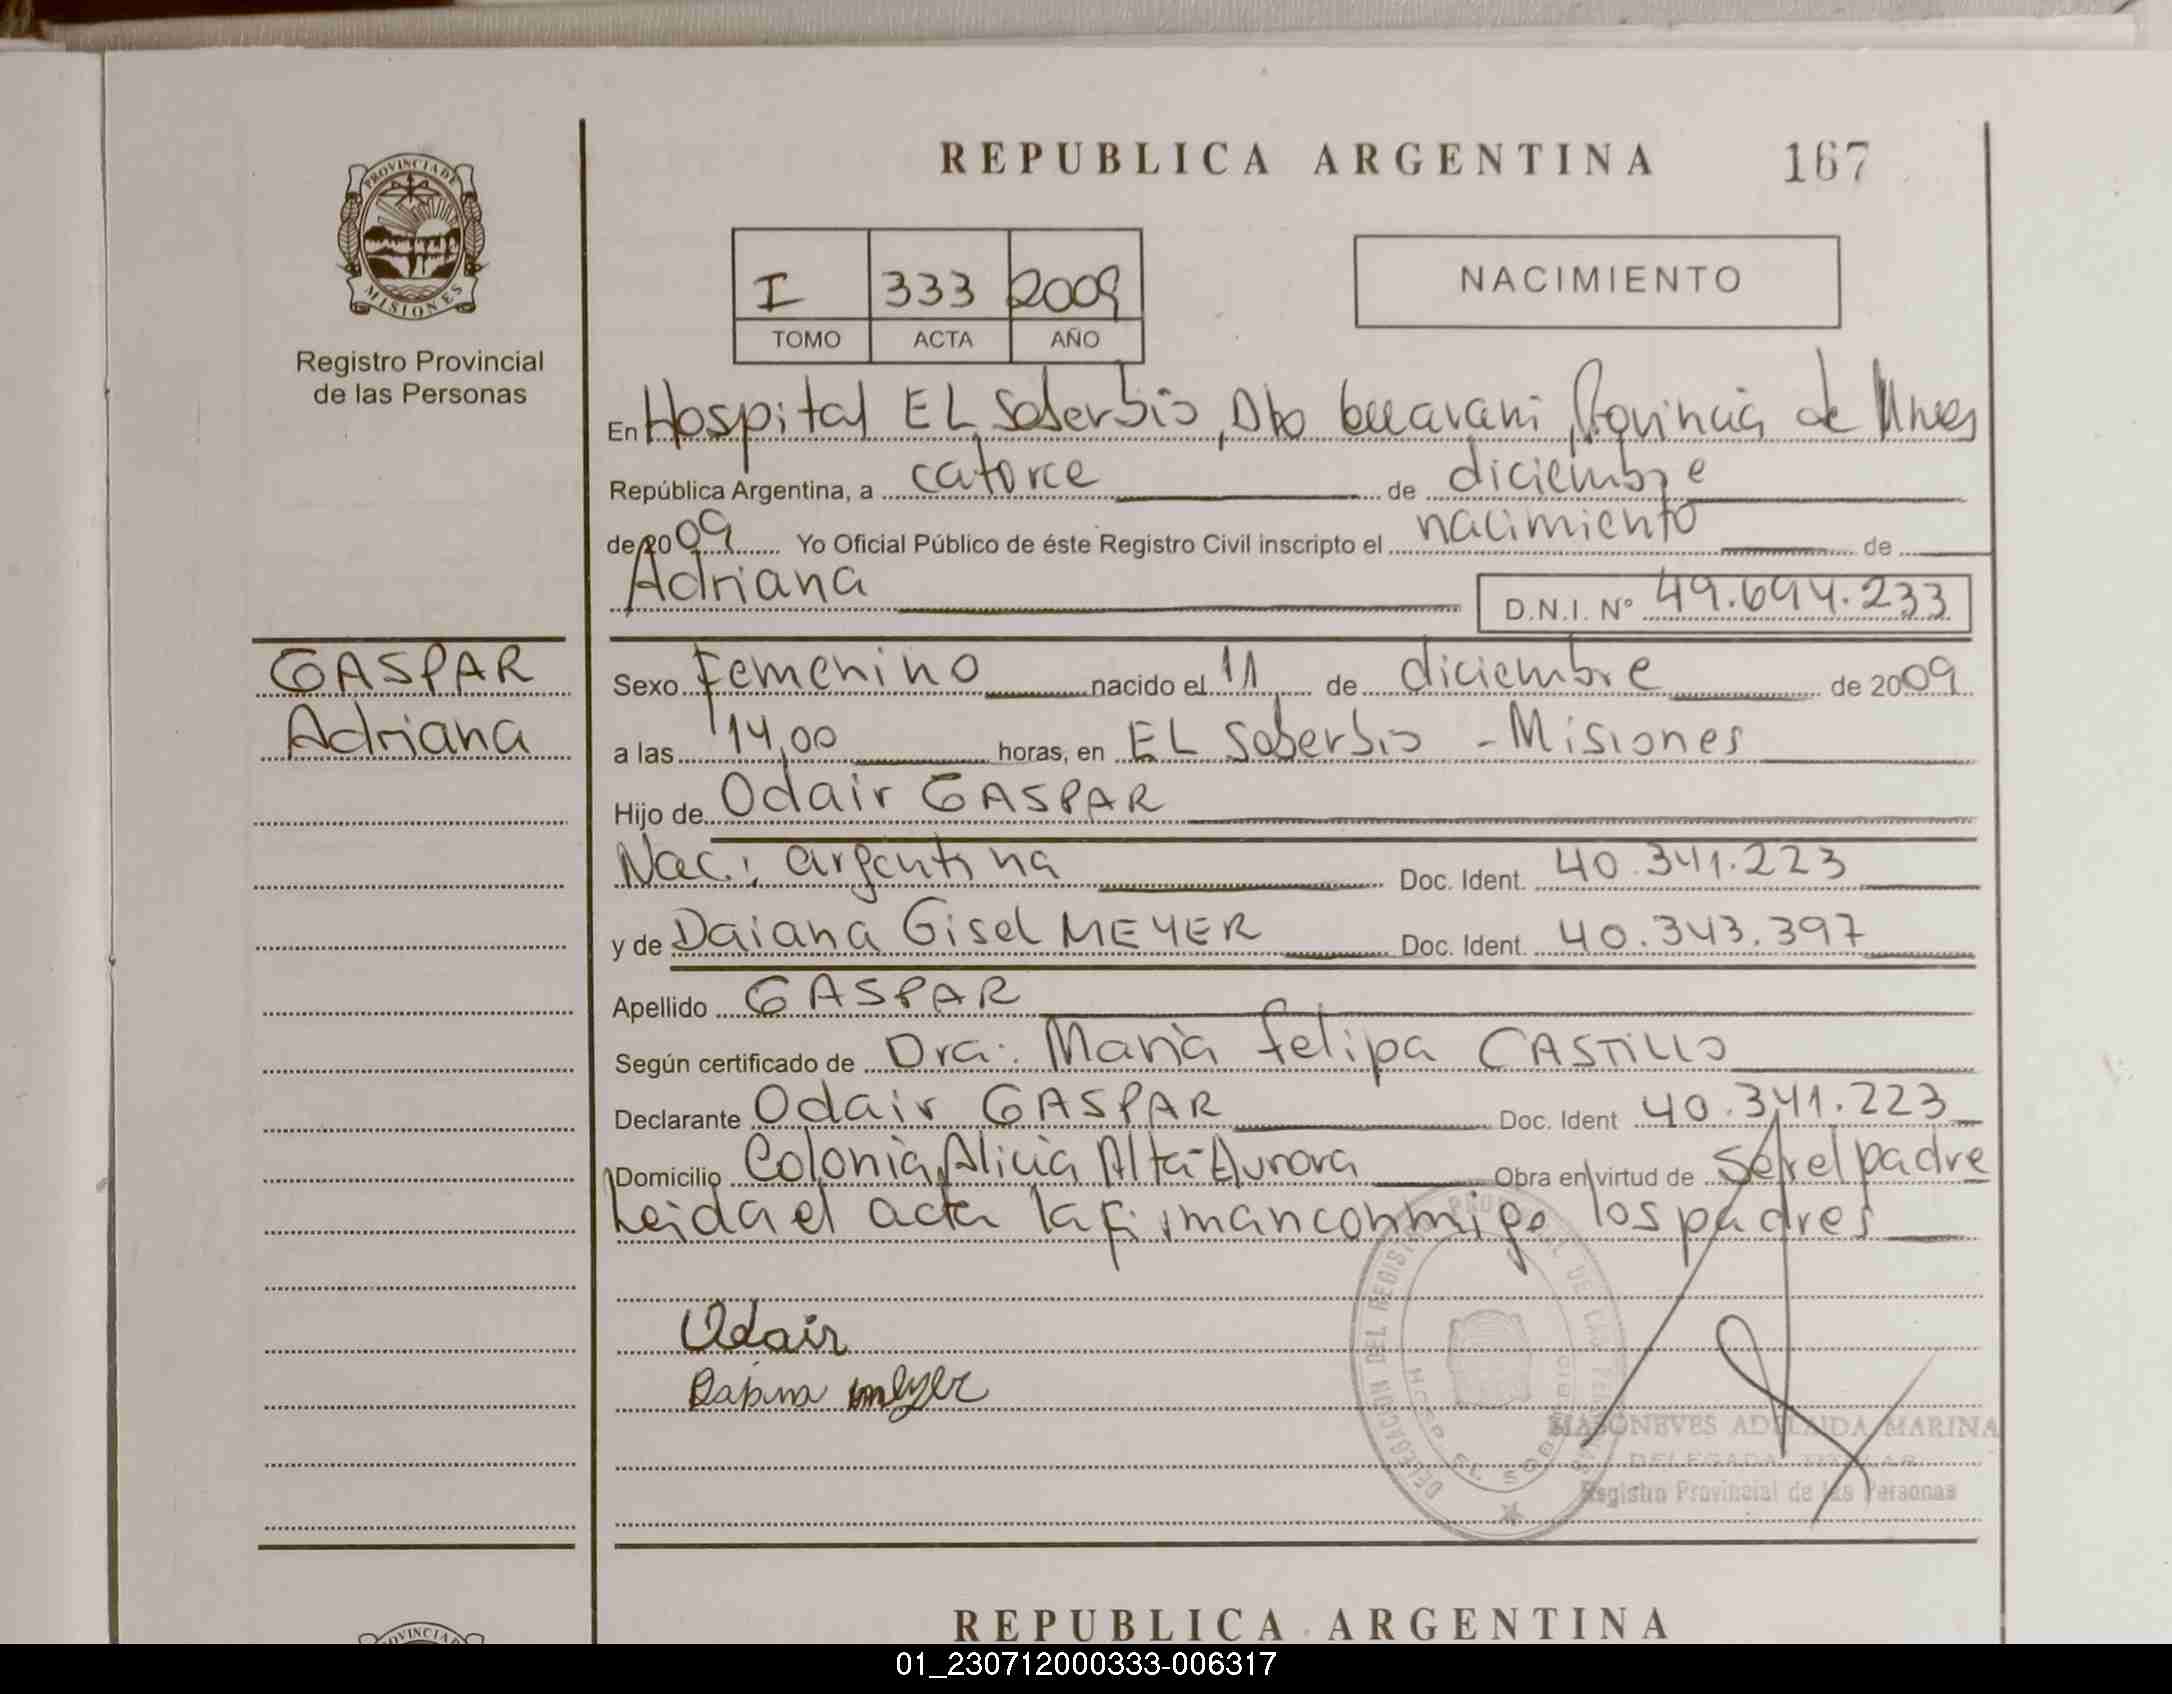 REPUBLICA ARGENTINA 167
PROVINCIA DE MISIONES
Registro Provincial
de las Personas
I 333 2009
TOMO ACTA AÑO
NACIMIENTO
En Hospital EL Soberbio, Dto Guarani, Provincia de Mnes
República Argentina, a catorce de diciembre
de 2009 Yo Oficial Público de éste Registro Civil inscripto el nacimiento de
Adriana D.N.I. Nº 49.694.233
GASPAR
Adriana
Sexo Femenino nacido el 11 de diciembre de 2009
a las 14,00 horas, en EL Soberbio - Misiones
Hijo de Odair GASPAR
Nac.: argentina Doc. Ident. 40.341.223
y de Daiana Gisel MEYER Doc. Ident. 40.343.397
Apellido GASPAR
Según certificado de Dra. Maria Felipa CASTILLO
Declarante Odair GASPAR Doc. Ident 40.341.223
Domicilio Colonia Alicia Alta-Aurora Obra en virtud de ser el padre
Leida el acta la firman conmigo los padres
Odair
meyer
DELEGACION DEL REGISTRO PROVINCIAL DE LAS
EL SOBERBIO
MASONEVES ADELAIDA MARINA
DELEGADA
Registro Provincial de las Personas
REPUBLICA ARGENTINA
01_230712000333-006317